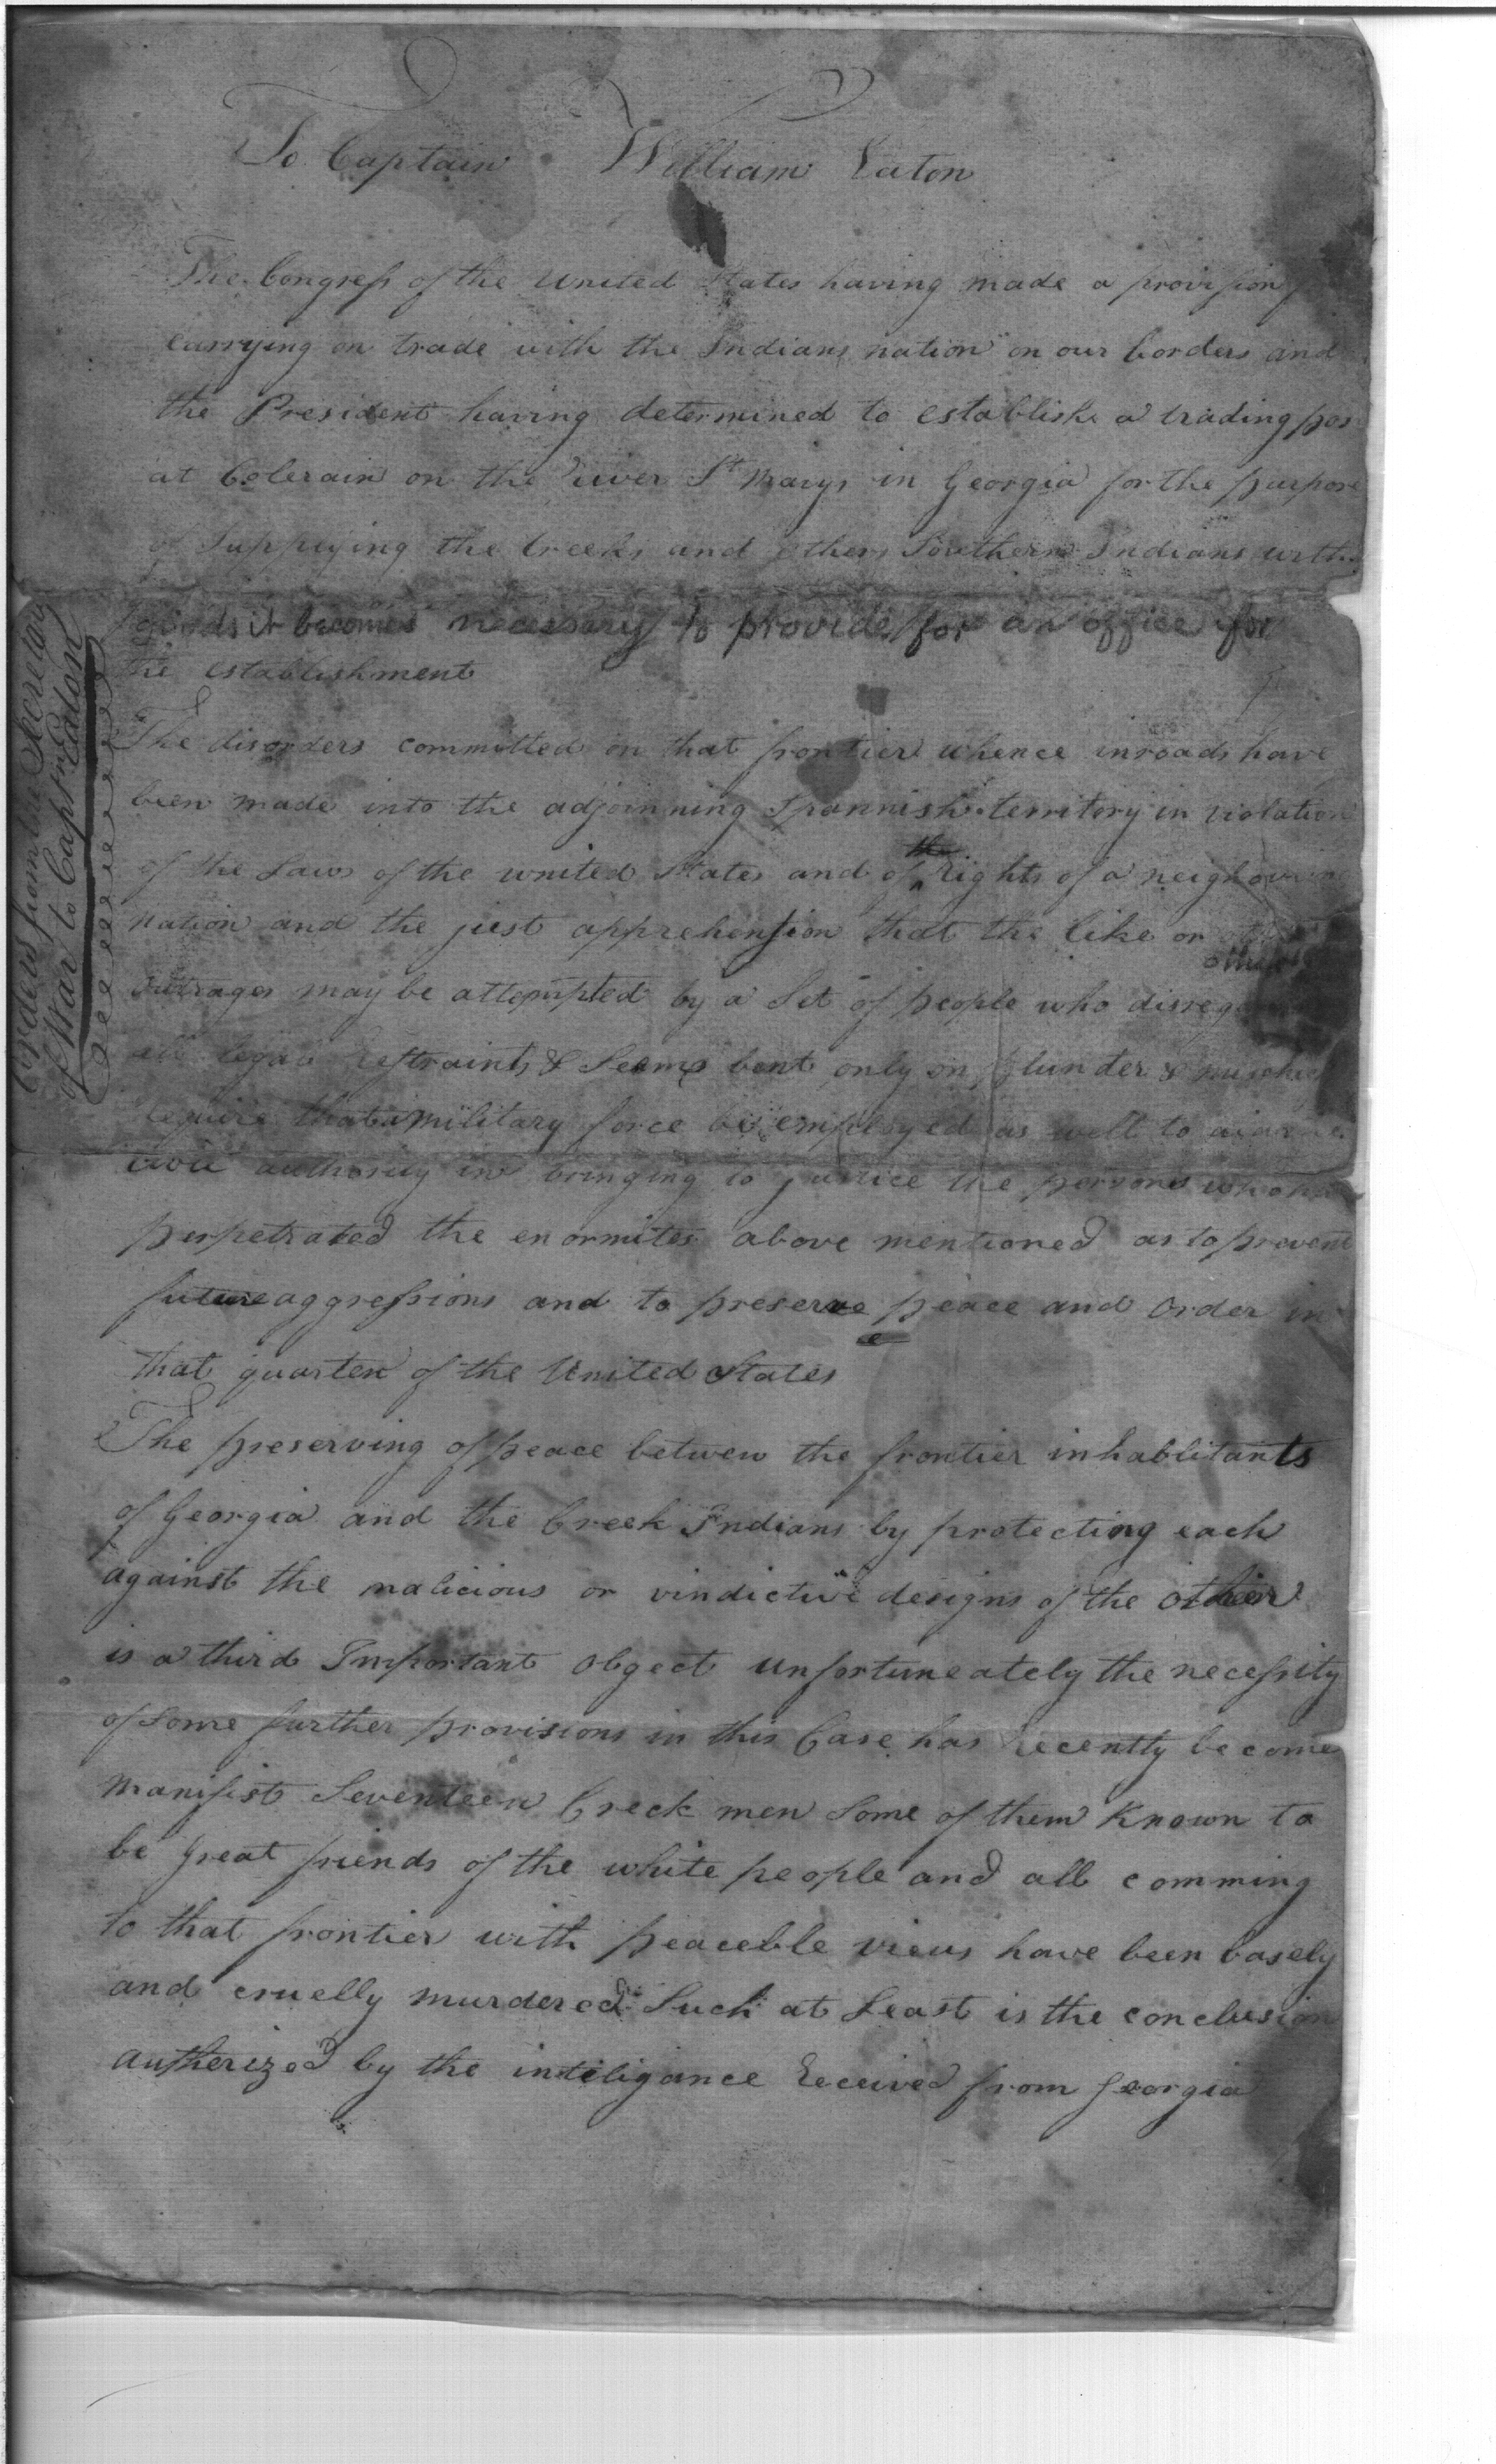 To Captain William Eaton
The Congress of the United States having made a provision
carrying on trade with the Indians nation on our borders and
the President having determined to establish a trading pos
at Colerain on the river St Marys in Georgia for the purpose
of Supplying the Creeks and others Southern Indians with
goods it becomes necessary to provide for an office for
the establishment
The disorders committed on that frontier whence inroads have
been made into the adjoinning Spannish territory in violation
of the Laws of the united States and of the rights of a neighouring
nation and the just apprehension that the like or other
outrages may be attempted by a Set of people who disreg
all legal restraints & Seems bent only on plunder & mischief
require that a military force be employed as well to aid the
civil authority in bringing to justice the persons who
perpetrated the enormites above mentioned as to prevent
future aggressions and to preserve peace and Order in
that quarter of the United States
The preserving of peace betwen the frontier inhablitants
of Georgia and the Creek Indians by protecting each
against the malicious or vindictive designs of the other
is a third Important Object unfortuneately the necessity
of Some further provisions in this Case has recently become
manifist Seventeen Creek men Some of them Known to
be great friends of the white people and all comming
to that frontier with peaceble views have been basely
and cruelly murdered Such at Least is the conclusion
autherized by the inteligance received from georgia
Orders from the Secretary
of War to Capt. Eaton